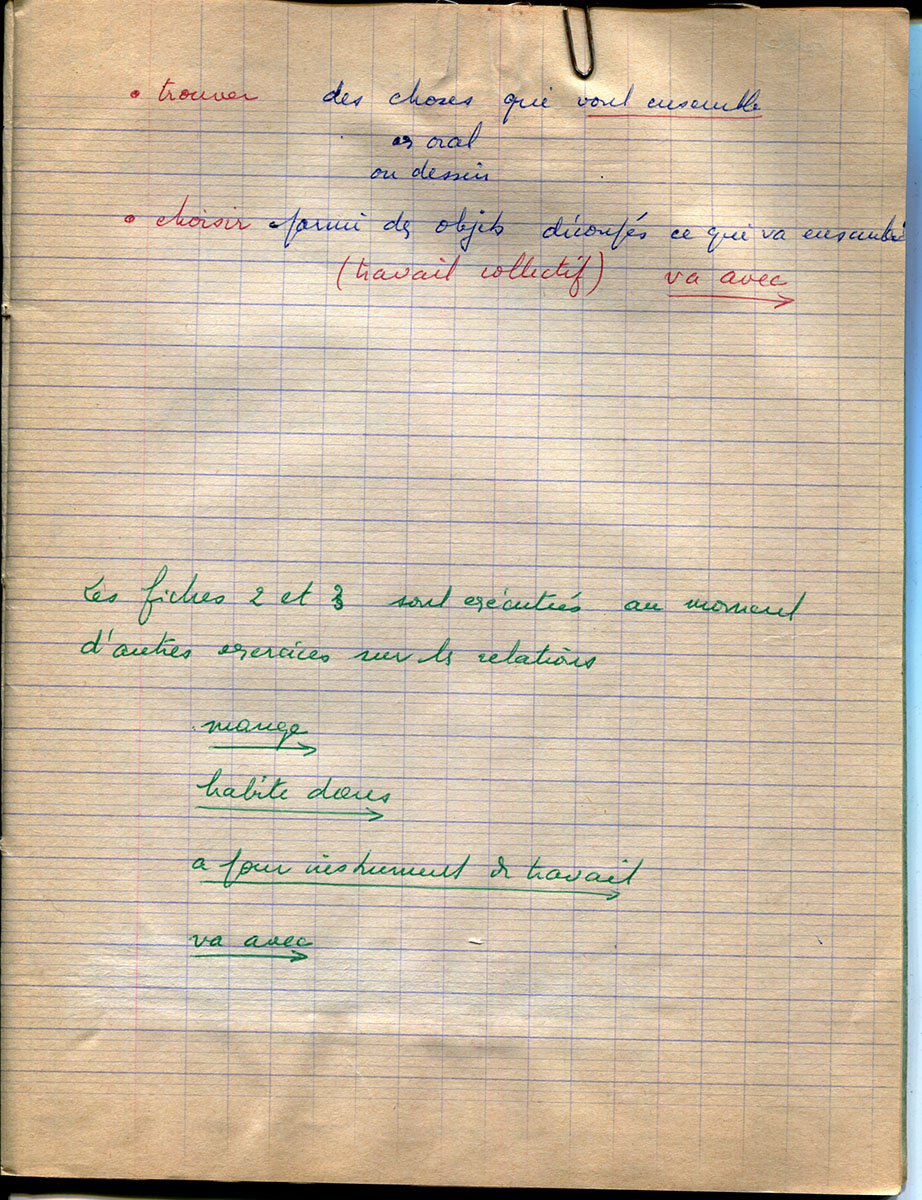 • trouver des choses qui vont ensemble
oral
ou dessin
• choisir parmi des objets découpés ce qui va ensemble
(travail collectif) va avec
Les fiches 2 et 3 sont exécutées au moment
d'autres exercices sur les relations
mange
habite dans
a pour instrument de travail
va avec